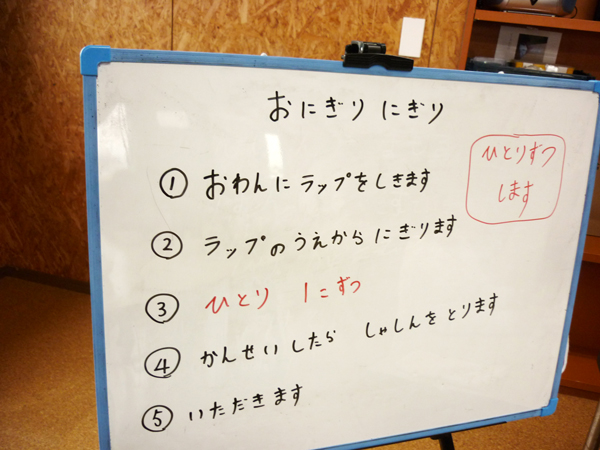 おにぎり にぎり
ひとりずつ
します
① おわんにラップをしきます
② ラップのうえからにぎります
③ ひとり 1こずつ
④ かんせいしたら しゃしんをとります
⑤ いただきます